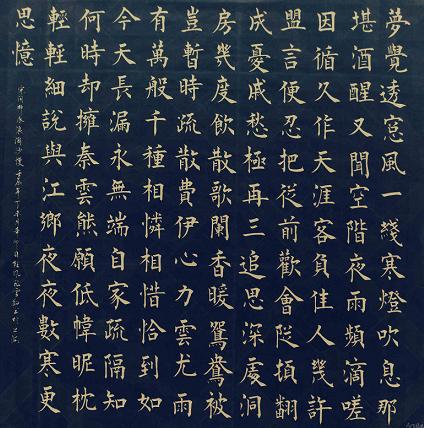 夢覺透窓風一綫寒燈吹息那
堪酒醒又聞空階夜雨頻滴嗟
因循久作天涯客負佳人幾許
盟言便忍把從前歡會陡頓翻
成憂戚愁極再三追思深處洞
房幾度飲散歌闌香暖鴛鴦被
豈暫時疏散費伊心力雲尤雨
有萬般千種相憐相惜恰到如
今天長漏永無端自家疏隔知
何時却擁秦雲態願低幃昵枕
輕輕細說與江鄉夜夜數寒更
思憶
宋詞柳永浪濤沙慢